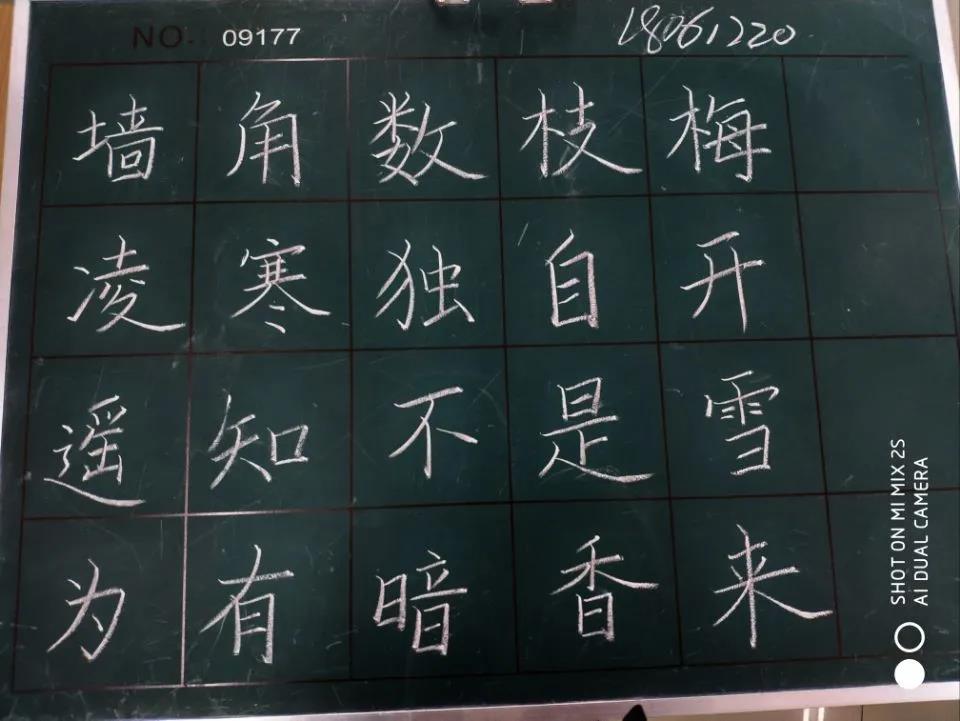 NO. 09177
18061220
墙角数枝梅
凌寒独自开
遥知不是雪
为有暗香来
SHOT ON MI MIX 2S
AI DUAL CAMERA